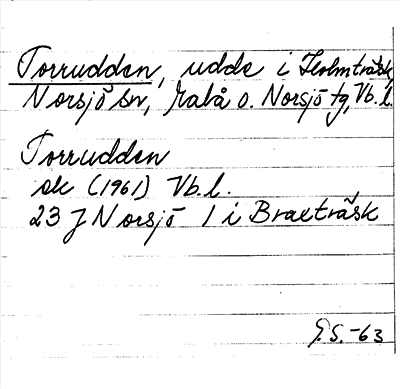 Torrudden, udde i Holmträsk,
Norsjö sn, Malå o. Norsjö tg, Vb. l.
Torrudden
ek (1961) Vb. l.
23 J Norsjö 1 i Braxträsk
G.S.-63